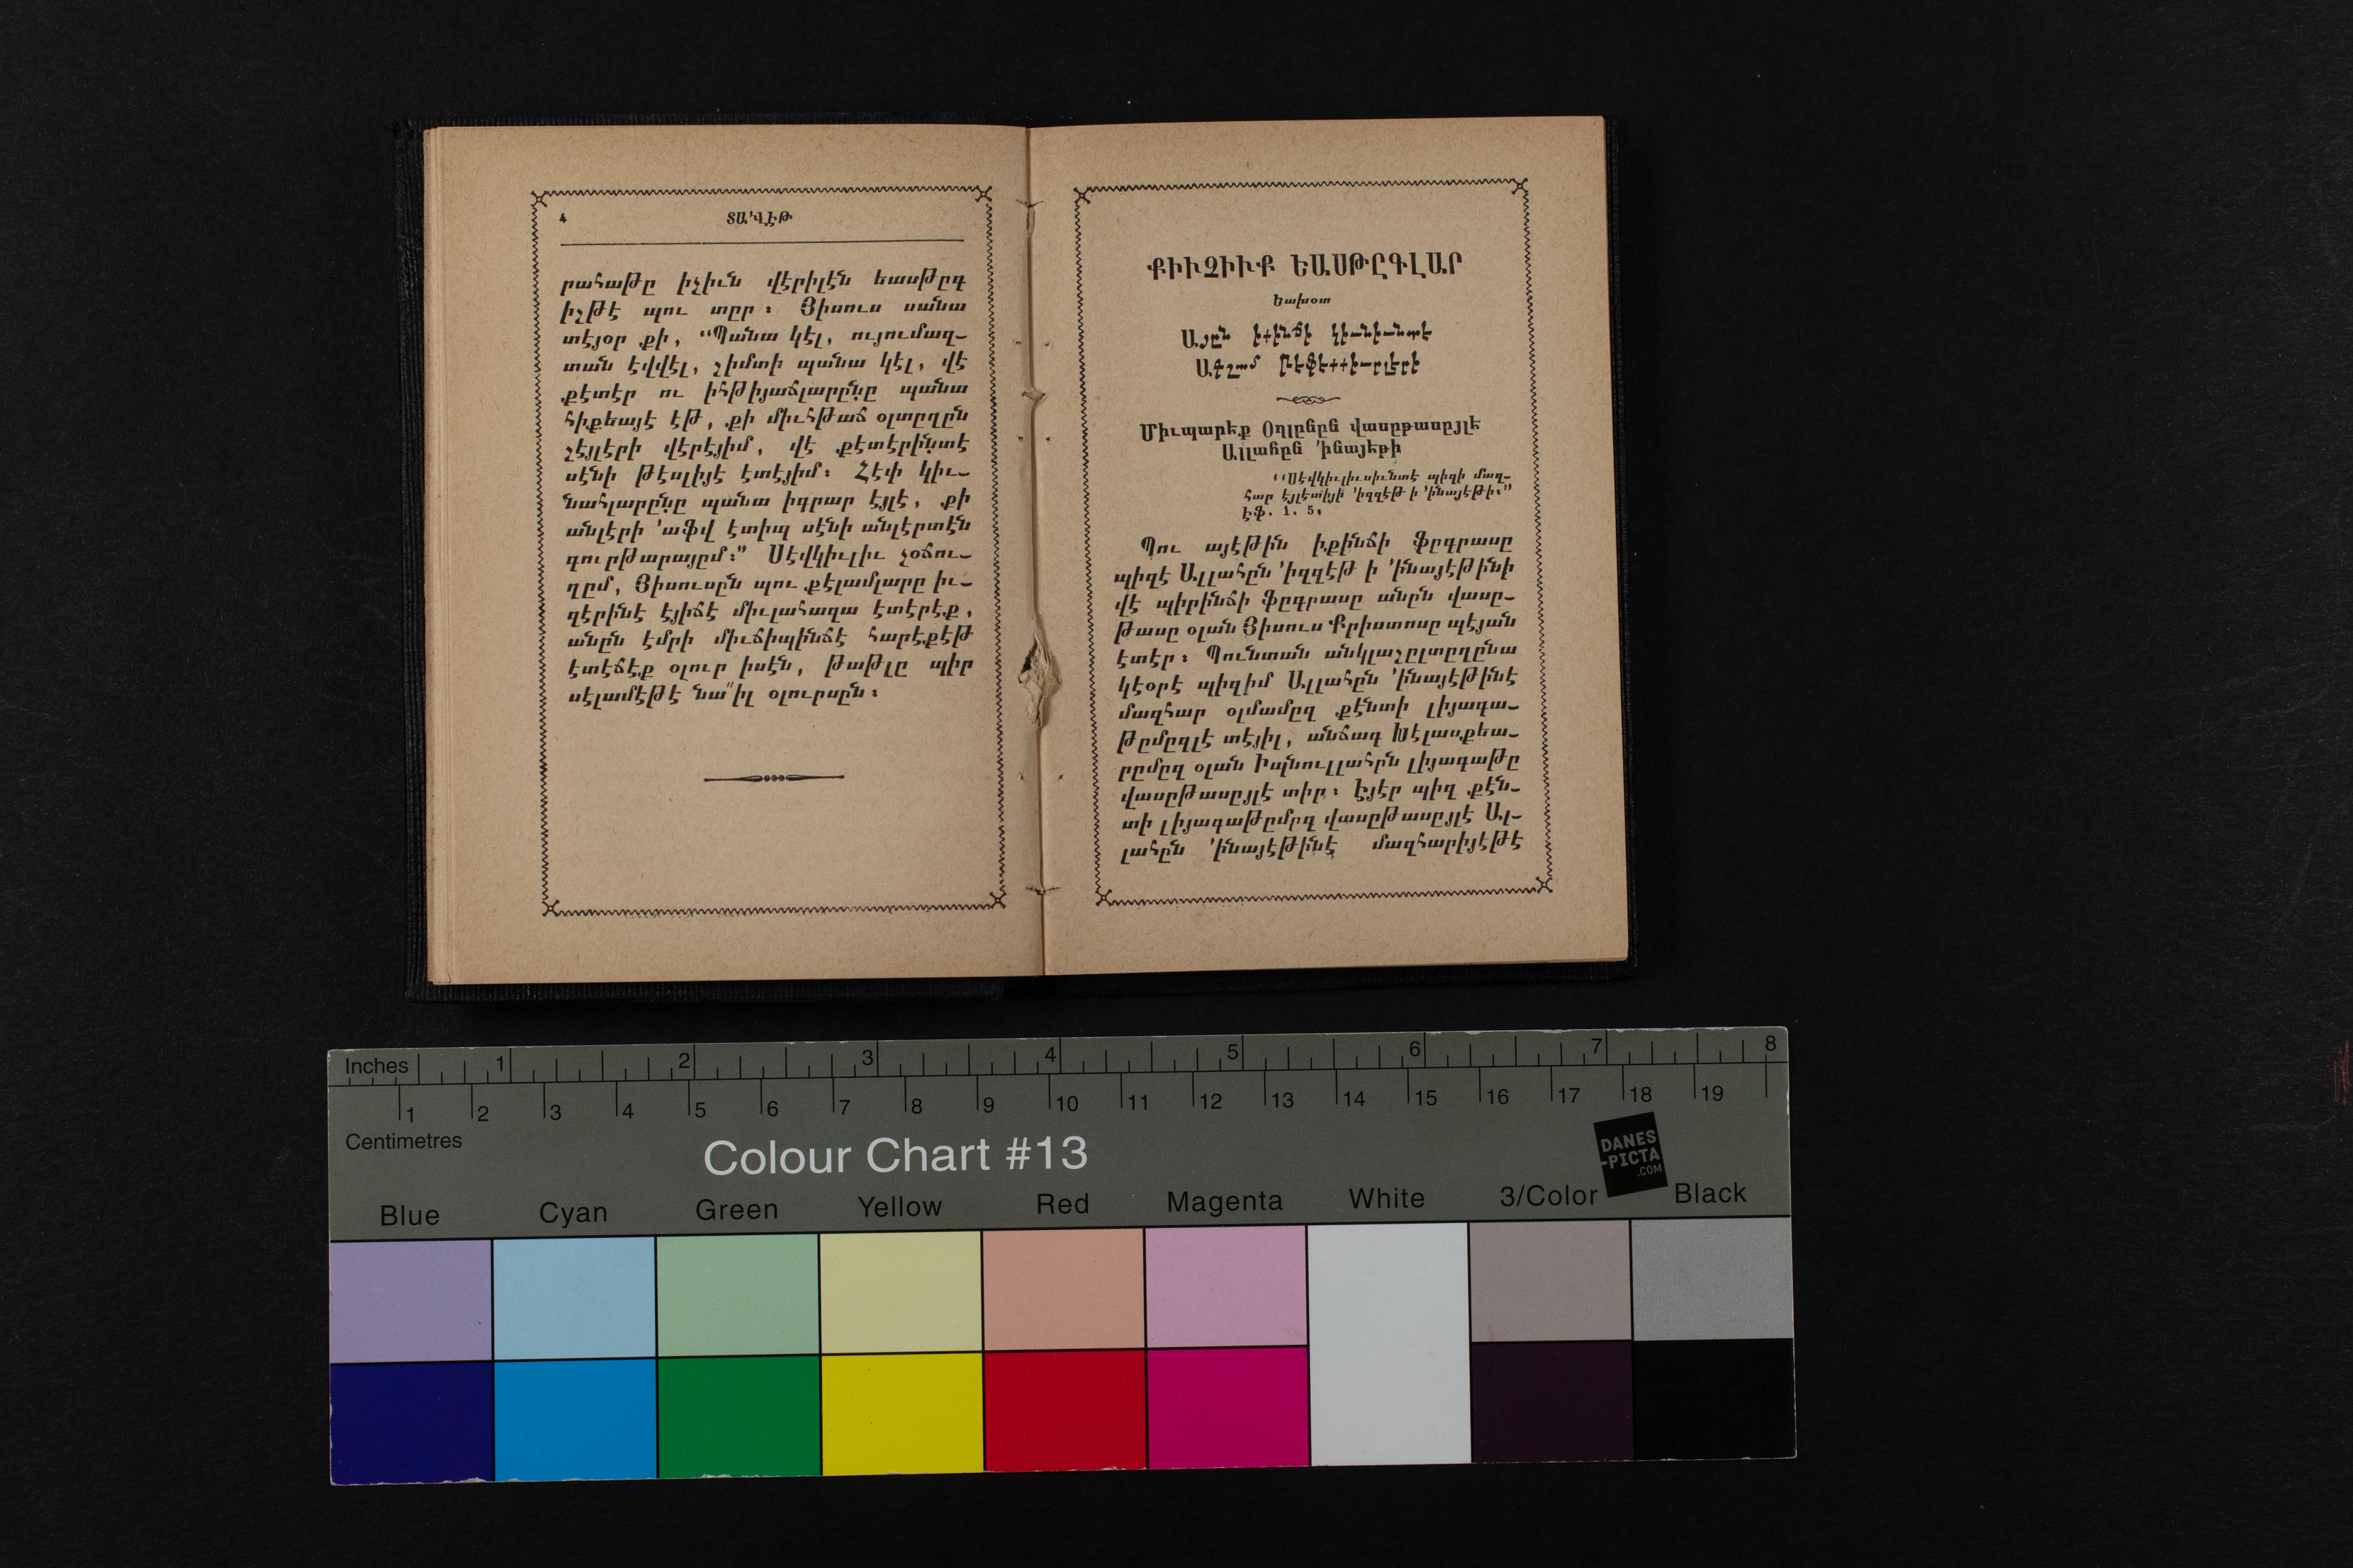 4
ՏԱ՛ՎԷԹ
րահաթը իչիւն վէրիլէն եասթըգ
իշթէ պու տըր։ Յիսուս սանա
տէյօր քի, “Պանա կէլ, ույումազ-
տան էվվէլ, շիմտի պանա կէլ, վէ
քէտէր ու իհթիյաճլարընը պանա
հիքեայէ էթ, քի միւհթաճ օլտըղըն
շէյլէրի վէրէյիմ, վէ քէտէրինտէ
սէնի թէսլիյէ էտէյիմ։ Հէփ կիւ-
նահլարընը պանա իգրար էյլէ, քի
անլէրի ՚աֆվ էտիպ սէնի անլէրտէն
գուրթարայըմ։” Սէվկիւլիւ չօճու-
ղըմ, Յիսուսըն պու քէլամլարը իւ-
զէրինէ էյիճէ միւլահազա էտէրէք,
անըն էմրի միւճիպինճէ հարէքէթ
էտէճէք օլուր իսէն, թաթլը պիր
սէլամէթէ նա՛՛իլ օլուրսըն։
ՔԻՒՉԻՒՔ ԵԱՍԹԸԳԼԱՐ
Եախօտ
Այըն
Միւպարեք Օղլընըն վասըթասըյլե
Ալլահըն ՚ինայեթի
“Սէվկիւլիւսիւնտէ պիզի մազ-
հար էյլէտիյի ՚իզզէթ ի ՚ինայէթի։”
Էֆ. 1. 5։
Պու այէթին իքինճի ֆըգրասը
պիզէ Ալլահըն ՚իզզէթ ի ՚ինայէթինի
վէ պիրինճի ֆըգրասը անըն վասը-
թասը օլան Յիսուս Քրիստոսը պէյան
էտէր։ Պունտան անկլաշըլտըղընա
կէօրէ պիզիմ Ալլահըն ՚ինայէթինէ
մազհար օլմամըզ քէնտի լիյագա-
թըմըզլէ տէյիլ, անճագ Խէլասքեա-
րըմըզ օլան Իպնուլլահըն լիյագաթը
վասըթասըյլէ տիր։ Էյէր պիզ քէն-
տի լիյագաթըմըզ վասըթասըյլէ Ալ-
լահըն ՚ինայէթինէ մազհարիյէթէ
Inches 1 2 3 4 5 6 7 8
1 2 3 4 5 6 7 8 9 10 11 12 13 14 15 16 17 18 19
Centimetres
Colour Chart #13
DANES
-PICTA
.COM
Blue Cyan Green Yellow Red Magenta White 3/Color Black